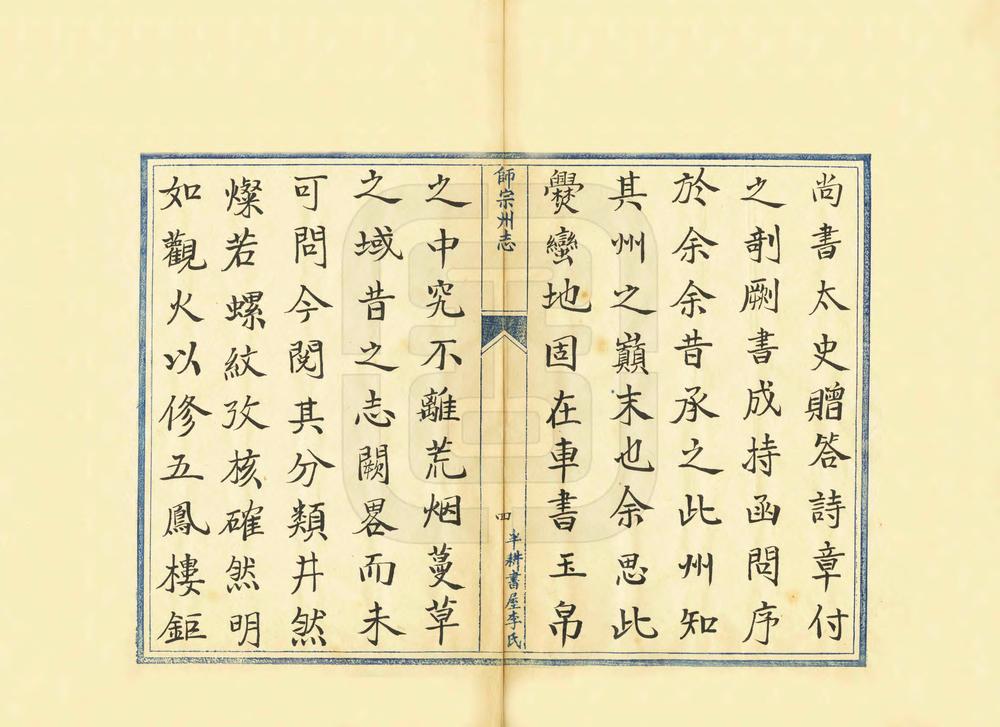 尚書太史贈答詩章付
之剞劂書成持函問序
於余余昔承之此州知
其州之巔末也余思此
爨蠻地固在車書玉帛
師宗州志
四
半耕書屋李氏
之中究不離荒烟蔓草
之域昔之志闕畧而未
可問今閱其分類井然
燦若螺紋攷核確然明
如觀火以修五鳳樓鉅